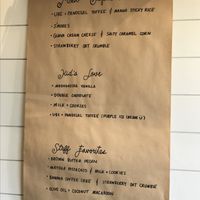 • UBE + PANDESAL TOFFEE & MANGO STICKY RICE
• S'MORES
• GUAVA CREAM CHEESE & SALTY CARAMEL CORN
• STRAWBERRY OAT CRUMBLE
Kid's Love
• MADAGASCAR VANILLA
• DOUBLE CHOCOLATE
• MILK + COOKIES
• UBE + PANDESAL TOFFEE (PURPLE ICE CREAM!)
Staff Favorites
• BROWN BUTTER PECAN
• MATCHA PISTACHIO & MILK + COOKIES
• BANANA COFFEE CAKE & STRAWBERRY OAT CRUMBLE
• OLIVE OIL + COCONUT MACAROON